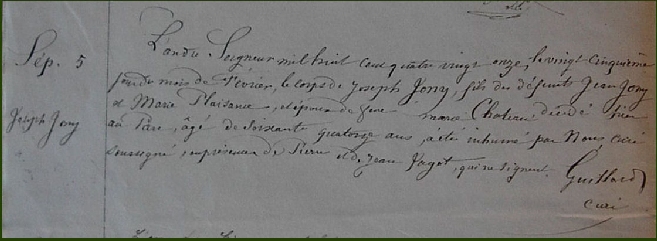 Sép. 5
Joseph Jony
L'an du Seigneur mil huit cent quatre vingt onze, le vingt cinquième
jour du mois de Février, le corps de Joseph Jony, fils des défunts Jean Jony
et Marie Plaisance, et époux de feue Marie Chateau décédé hier
au Parc, âgé de soixante quatorze ans, a été inhumé par Nous, curé
soussigné en présence de Pierre et de Jean Pagot, qui ne signent.
Guillard
curé